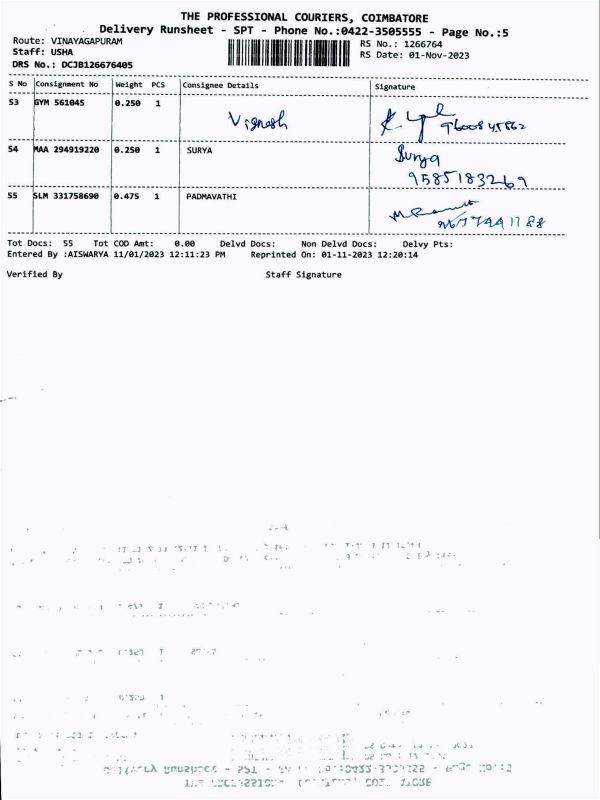 THE PROFESSIONAL COURIERS, COIMBATORE
Delivery Runsheet - SPT - Phone No.:0422-3505555 - Page No.:5
Route: VINAYAGAPURAM
Staff: USHA
DRS No.: DCJB126676405
RS No.: 1266764
RS Date: 01-Nov-2023
S No Consignment No Weight PCS Consignee Details Signature
53 GYM 561045 0.250 1 Vignesh
54 MAA 294919220 0.250 1 SURYA Surya
9585183269
55 SLM 331758690 0.475 1 PADMAVATHI
Tot Docs: 55 Tot COD Amt: 0.00 Delvd Docs: Non Delvd Docs: Delvy Pts:
Entered By :AISWARYA 11/01/2023 12:11:23 PM Reprinted On: 01-11-2023 12:20:14
Verified By Staff Signature